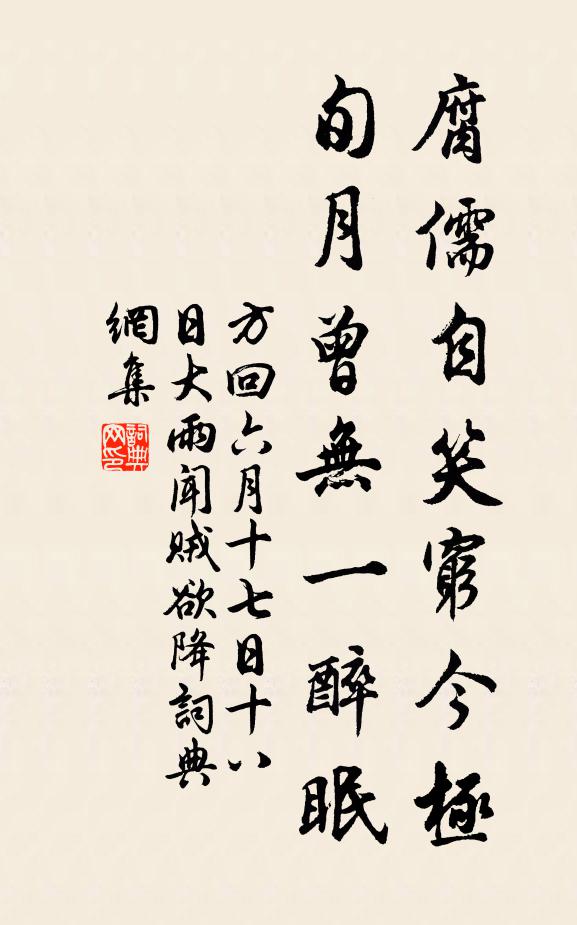 腐儒自笑窮今極
旬月曾無一醉眠
方回六月十七日十八
日大雨聞賊欲降詞典
網集
詞典
网印